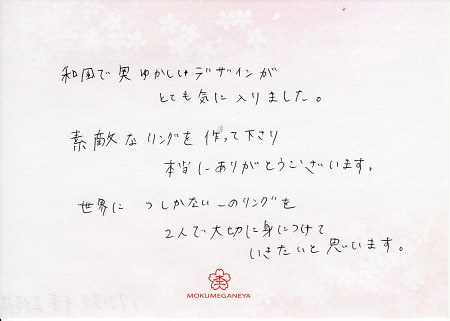 和風で奥ゆかしいデザインが
とても気に入りました。
素敵なリングを作って下さり
本当にありがとうございます。
世界に つしかない一のリングを
2人で大切に身につけて
いきたいと思います。
MOKUMEGANEYA